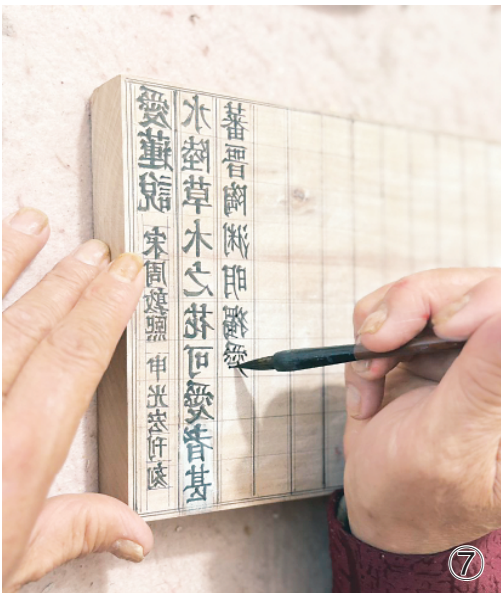 愛蓮說 宋周敦熙 申光宏刊刻
水陸草木之花可愛者甚
蕃晉陶渊明獨愛
⑦